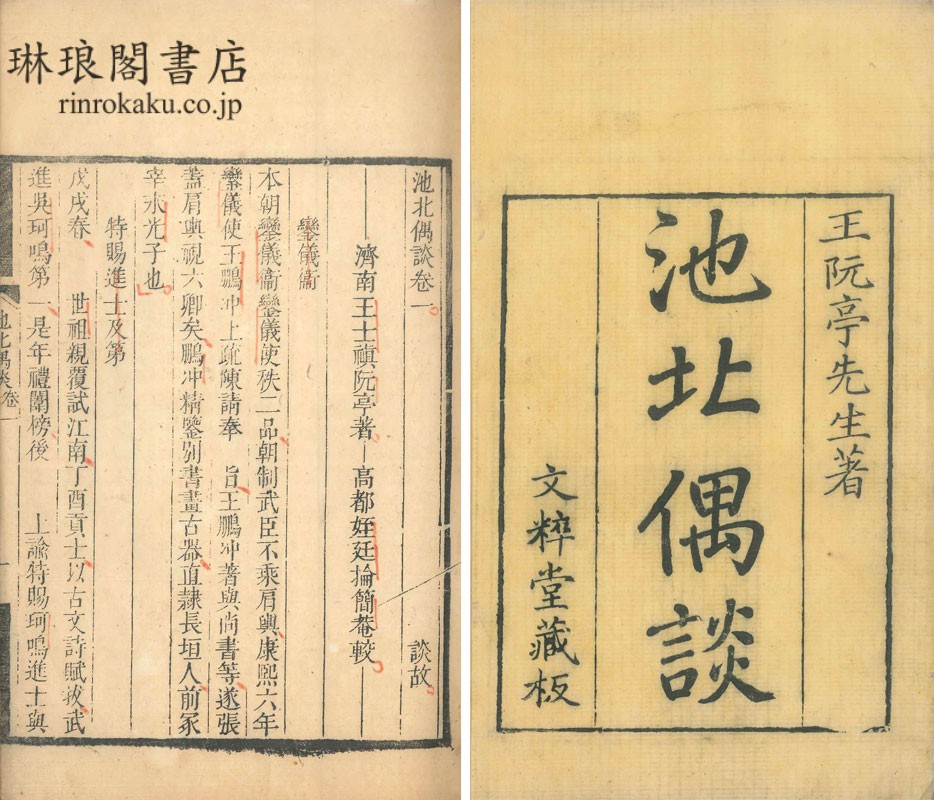 琳琅閣書店
rinrokaku.co.jp
池北偶談卷一 談故
濟南王士禛阮亭著 高都姪廷掄簡菴較
鑾儀衞
本朝鑾儀衞鑾儀使秩二品朝制武臣不乘肩輿康熙六年
鑾儀使王鵬冲上疏陳請奉 旨王鵬冲著與尚書等遂張
蓋肩輿視六卿矣鵬冲精鑒別書畫古器直隷長垣人前冢
宰永光子也
特賜進士及第
戊戌春 世祖親覆試江南丁酉貢士以古文詩賦拔武
進吳珂鳴第一是年禮闈榜後 上諭特賜珂鳴進士與
池北偶談卷一
王阮亭先生著
池北偶談
文粹堂藏板